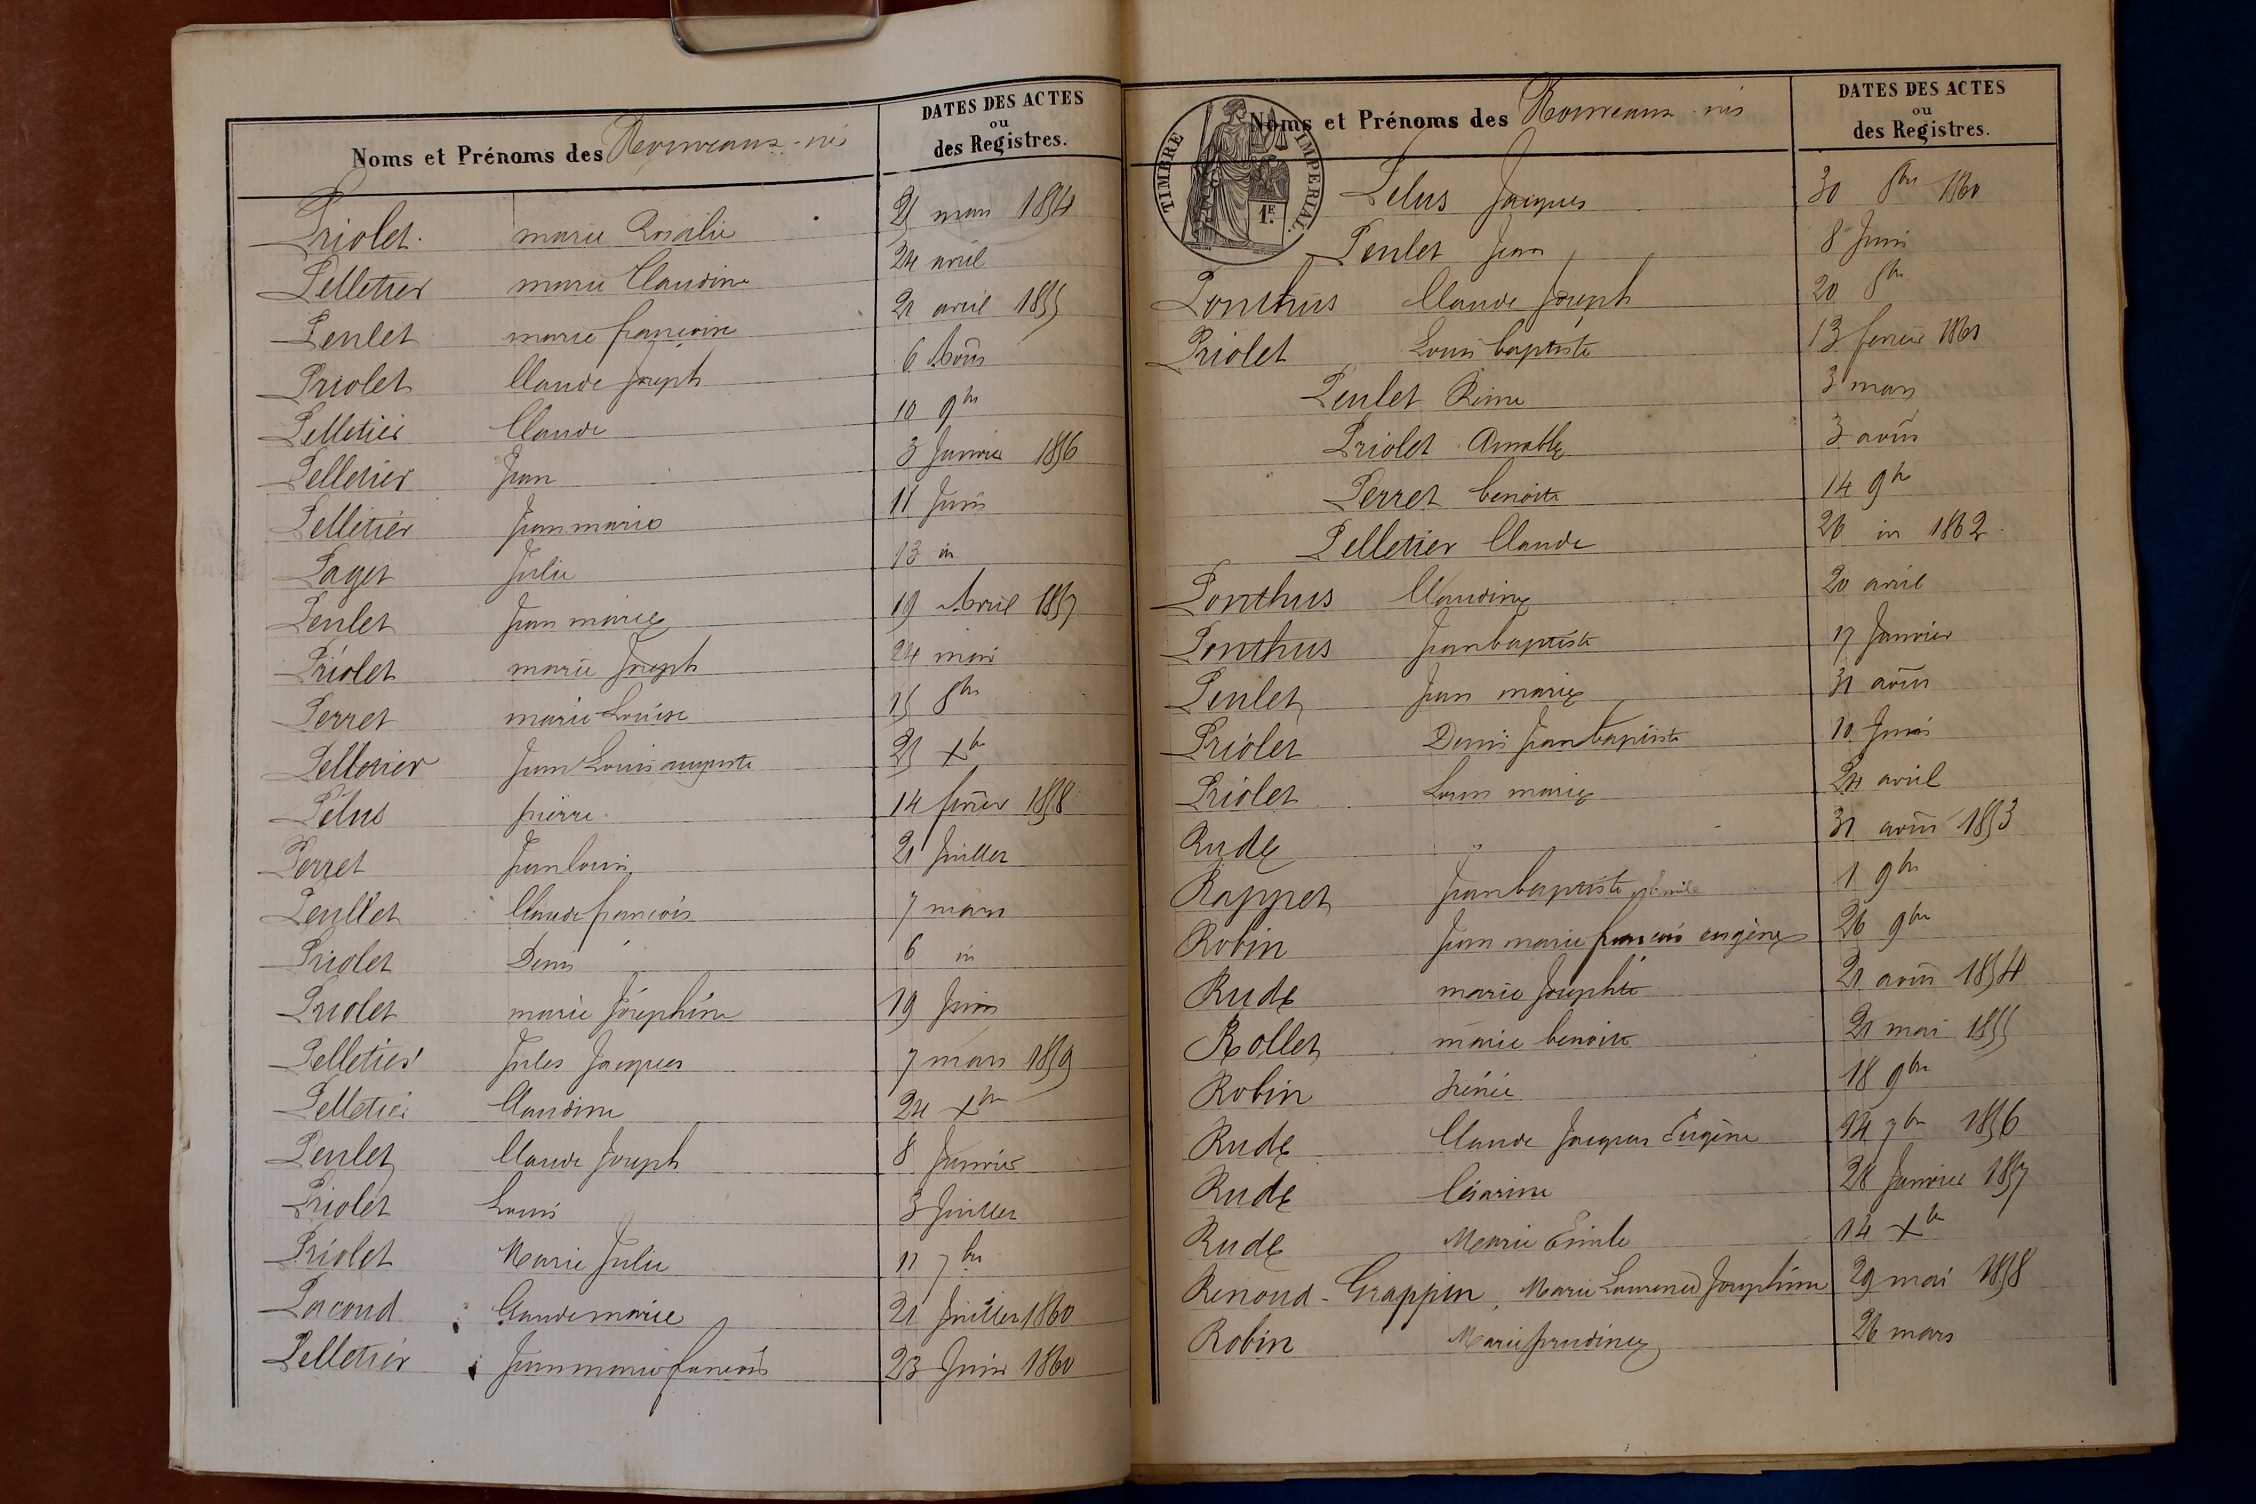 Noms et Prénoms des Nouveaux-nés
DATES DES ACTES
ou
des Registres.
Priolet marie Rosalie 25 mars 1854
Pelletier marie Claudine 24 avril
Peulet marie françoise 21 avril 1855
Priolet Claude Joseph 6 Août
Pelletier Claude 10 9bre
Pelletier Jean 3 Janvier 1856
Pelletier Jean marie 11 Juin
Paget Julie 13 id
Peulet Jean marie 19 Avril 1857
Priolet marie Joseph 24 mai
Perret marie Louise 15 8bre
Pelletier Jean Louis auguste 25 Xbre
Pelus pierre 14 février 1858
Perret Jean louis 21 Juillet
Peullet Claude françois 7 mars
Priolet Denis 6 id
Priolet marie Joséphine 19 Juin
Pelletier Jules Jacques 7 mars 1859
Pelletier Claudine 24 Xbre
Peulet Claude Joseph 8 Janvier
Priolet Louis 3 Juillet
Priolet Marie Julie 11 7bre
Pacoud Claude marie 21 Juillet 1860
Pelletier Jean marie françois 23 Juin 1860
TIMBRE IMPERIAL.
1E.
Noms et Prénoms des Nouveaux-nés
DATES DES ACTES
ou
des Registres.
Pelus Jacques 30 8bre 1860
Peulet Jean 8 Juin
Ponthus Claude Joseph 20 8bre
Priolet Louis baptiste 13 février 1861
Peulet Reine 3 mars
Priolet Amable 3 août
Perret benoite 14 9bre
Pelletier Claude 26 id 1862
Ponthus Claudine 20 avril
Ponthus Jean baptiste 17 Janvier
Peulet Jean marie 31 août
Priolet Denis Jean baptiste 10 Juin
Priolet Louis marie 24 avril
Rude 31 août 1853
Rappet Jean baptiste Emile 1 9bre
Robin Jean marie françois eugène 26 9bre
Rude marie Josephte 21 août 1854
Rollet marie benoite 21 mai 1855
Robin Irénée 18 9bre
Rude Claude Jacques Eugène 14 7bre 1856
Rude Césarine 28 Janvier 1857
Rude Marie Emile 14 Xbre
Renoud-Grappin, Marie Laurence Joséphine 29 mai 1858
Robin Marie prudine 26 mars